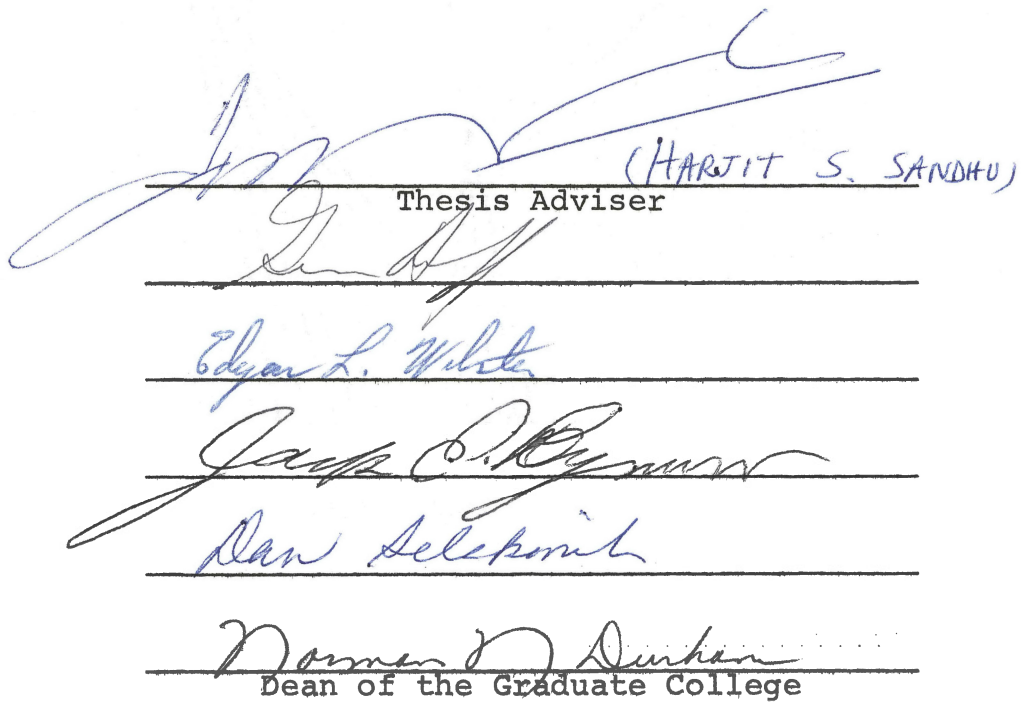 (HARJIT S. SANDHU)
Thesis Adviser
Edgar L. Webster
Jack E. Bynum
Dan Selakovich
Norman N Durham
Dean of the Graduate College